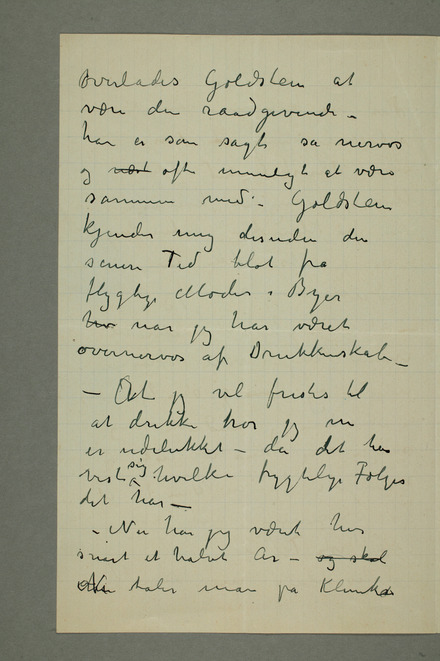 overlades Goldstein at
være den raadgivende –
han er som sagt så nervøs
og næst ofte umuligt at være
sammen med. – Goldstein
kjender mig desuden den
senere Tid blot fra
flygtige Møder i Byer
hv når jeg har været
overnervøs af Drukkenskab –
– At jeg vil fristes til
at drikke tror jeg nu
er udelukket – da det har
vist sig hvilke frygtelige Følger
det har –
– Nu har jeg været her
snart et halvt År – og skal
Nu taler man på Klinik